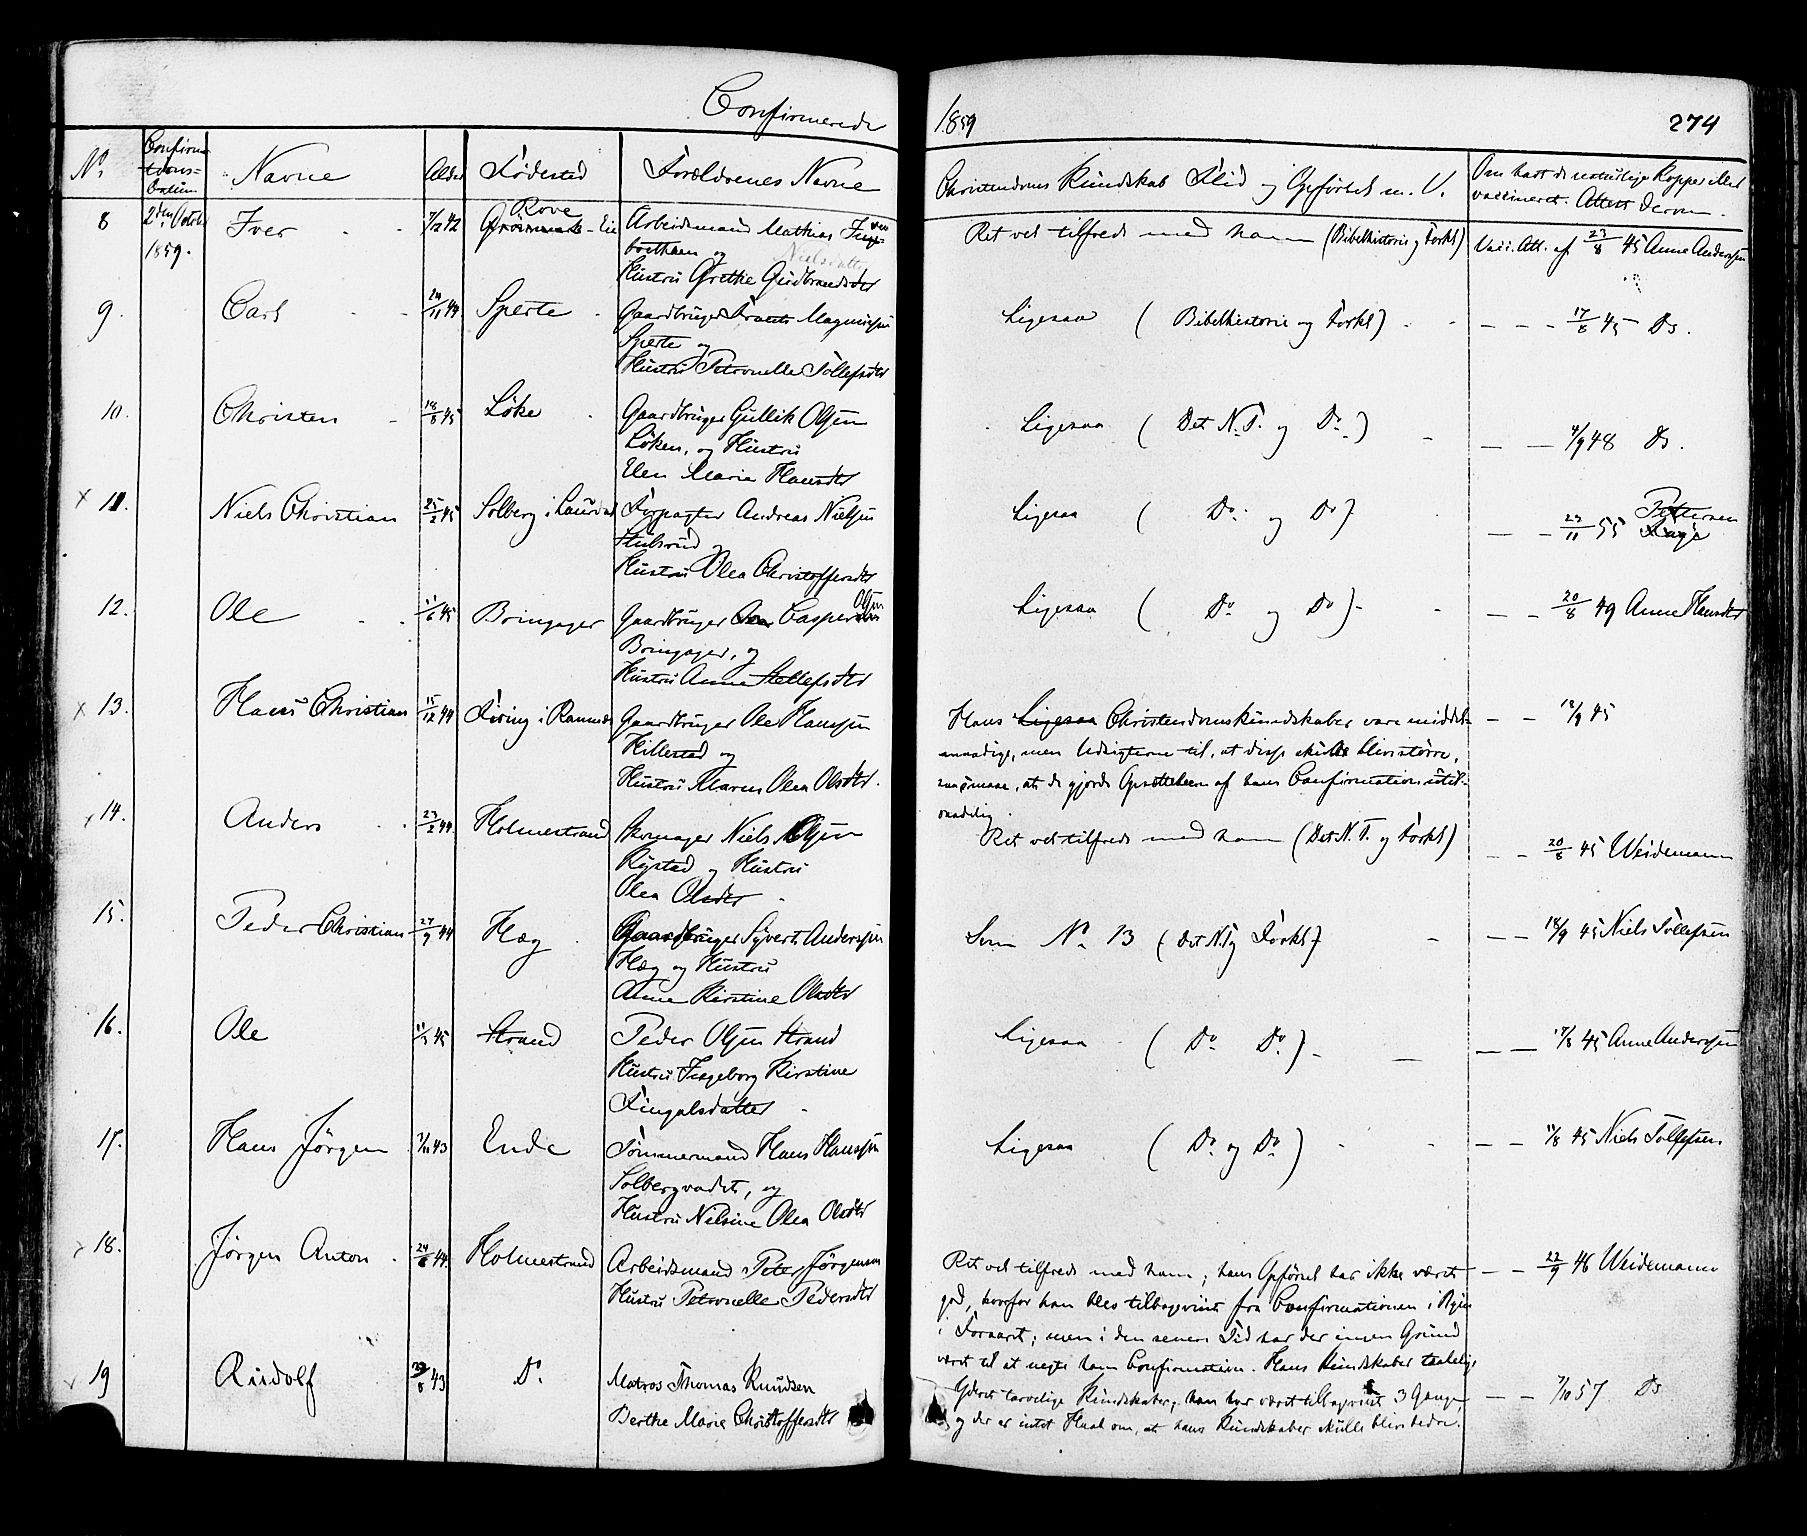 Confirmerede
1859
274
No. Confirmations-Datum Navne Alder Fødested Forældrenes Navne Christendoms Kundskab Flid og Opførsel m. V. Om havt de naturlige Kopper eller
vaccineret. Attest derom.
8 2den Octobr Iver 7/12 42 Rove Eie Arbeidsmand Mathias Ret vel tilfreds med ham (Bibelhistorie og Forkl) Vacc. Att. af 23/8 45 Anne Anderssen
1859. og Nielsdatt
Hustru Grethe Gudbrandsdtr
9. Carl 24/11 44 Sperte Gaardbruger Magnussen Ligesaa (Bibelhistorie og Forkl) - - - 17/8 45 Do.
Sperte og
Hustru Petronelle Tollefsdtr
10. Christen 18/8 45 Løke Gaardbruger Gullik Olssen Ligesaa (Det N. T. og Do.) - - 4/9 48 Do.
Løken, og Hustru
Elen Maria Hansdtr
x 11. Niels Christian 25/2 45 Solberg i Laurdal Forpagter Andreas Nielssen Ligesaa (Do. og Do) - - 23/11 55 Pettersen
Stulsrud og
Hustru Olea Christoffersdtr
12. Ole 11/6 45 Bringager Gaardbruger Casper Olssen Ligesaa (Do. og Do) - - 20/8 49 Anne Hansdtr
Bringager, og
Hustru Anne Stellefsdtr
x 13. Hans Christian 15/12 44 Firing i Ramnæs Gaardbruger Ole Hanssen Hans Ligesaa Christendomskundskaber vare middel- - - 12/9 45
Hillestad og maadige, men Udsigterne til, at disse skulde blive større,
Hustru Maren Olea Olsdtr. saa smaae, at de gjorde Opsættelsen af hans Confirmation util-
raadelig.
x 14. Anders 23/2 44 Holmestrand Skomager Niels Olssen Ret vel tilfreds med ham (Det N. T. og Forkl) - - 20/8 45 Weidemann
Rystad og Hustru
Olea Olsdtr.
15. Peder Christian 27/9 44 Hæg Gaardbruger Syvert Anderssen Som No. 13 (Det N.T og Forkl) - - 18/9 45 Niels Tollefsen
Hæg og Hustru
Anne Kirstine Olsdtr
16. Ole 11/3 45 Strand Peder Olssen Strand Ligesaa (Do. Do.) - - 17/8 45 Anne Anderssen
Hustru Ingeborg Kirstine
Fingalsdatter
17. Hans Jørgen 7/11 43 Ende Tømmermand Hans Hanssen Ligesaa (Do. og Do.) - - 11/8 45 Niels Tollefsen
Solbergvadet, og
Hustru Nilsine Olea Olsdtr
x 18. Jørgen Anton 24/6 44 Holmestrand Arbeidsmand Peter Jørgensen Ret vel tilfreds med ham; hans Opførsel har ikke været - - 22/9 46 Weidemann
Hustru Petronelle Pedersdtr god, hvorfor han blev tilbageviist fra Confirmationen i Byen
i Foraaret; men i den senere Tid har der ingen Grund
været til at negte ham Confirmation. Hans Kundskaber taalelige
19 Rudolf 29/8 43 Do. Matros Thomas Knudsen Yderst tarvelige Kundskaber; han har været tilbageviist 3 Gange - - 7/10 57 Do
Berthe Marie Christoffersdtr og der er intet Haab om, at hans Kundskaber skulle blive bedre.